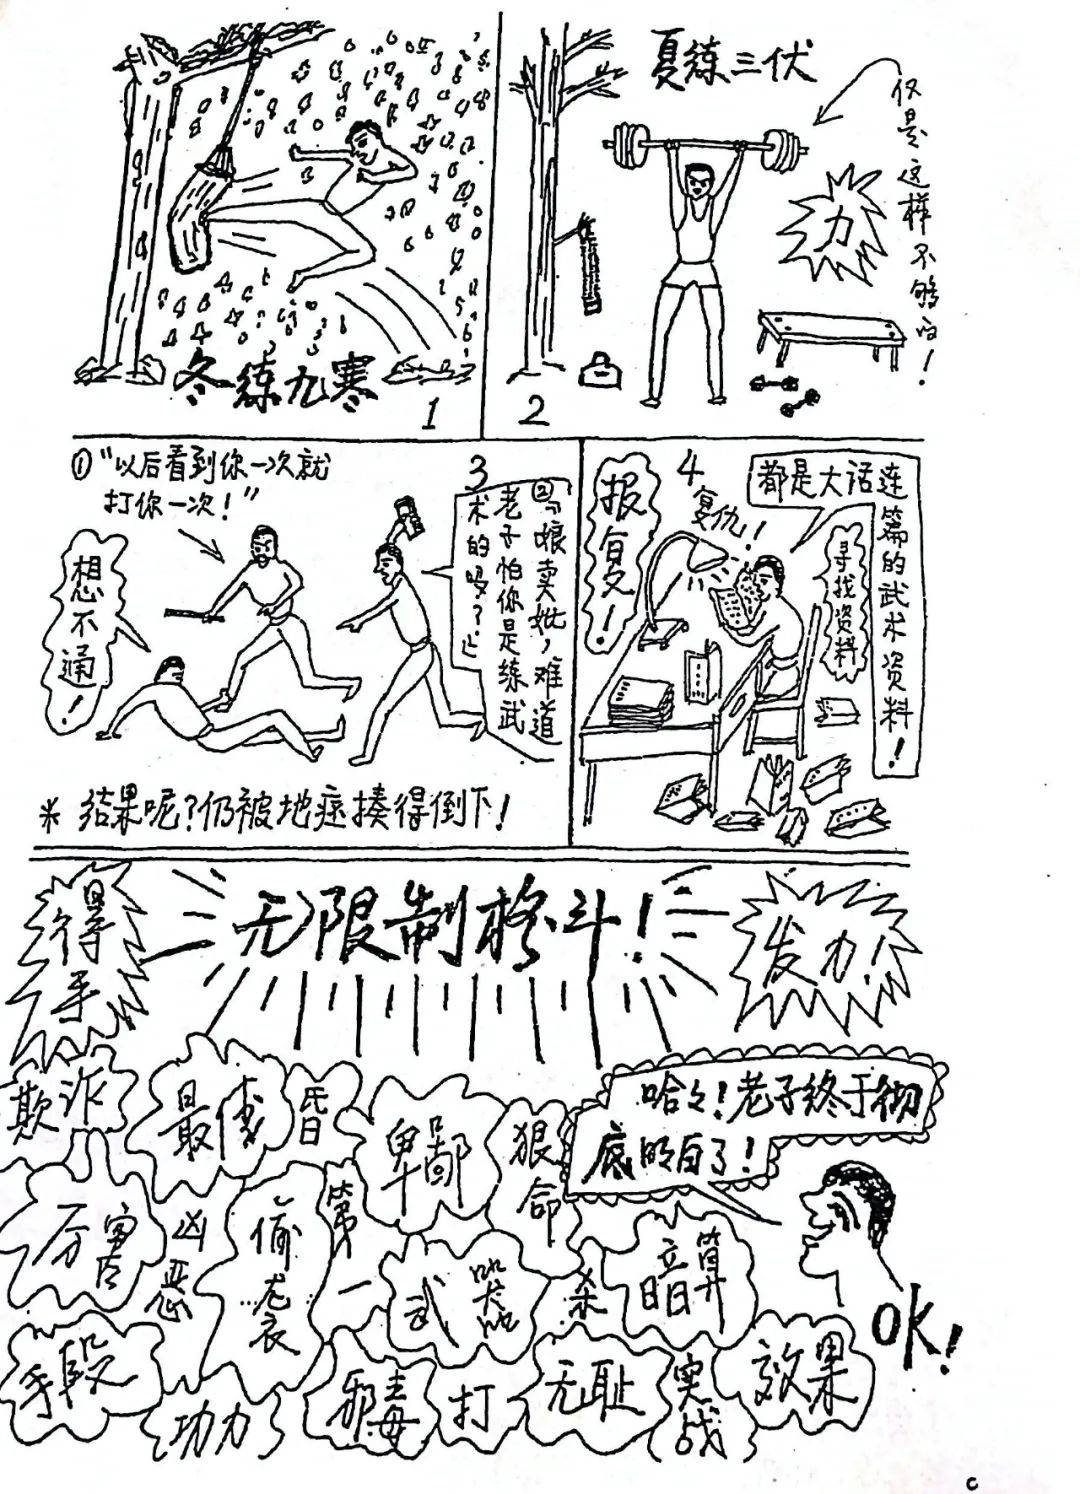 冬练九寒
1
夏练三伏
仅是这样不够的!
力
2
①“以后看到你一次就
打你一次!”
想不通!
3
②“娘卖妣,难道
老子怕你是练武
术的吗?”
* 结果呢?仍被地痞揍得倒下!
4
报复!
复仇!
都是大话连
篇的武术资料!
寻找资料
得手
无限制格斗!
发力!
哈々!老子终于彻
底明白了!
欺诈
最佳
卑鄙
狠
命
厉害
凶恶
偷袭
第一
武器
杀
暗算
OK!
手段
功力
邪毒
打
无耻
实战
效果
c